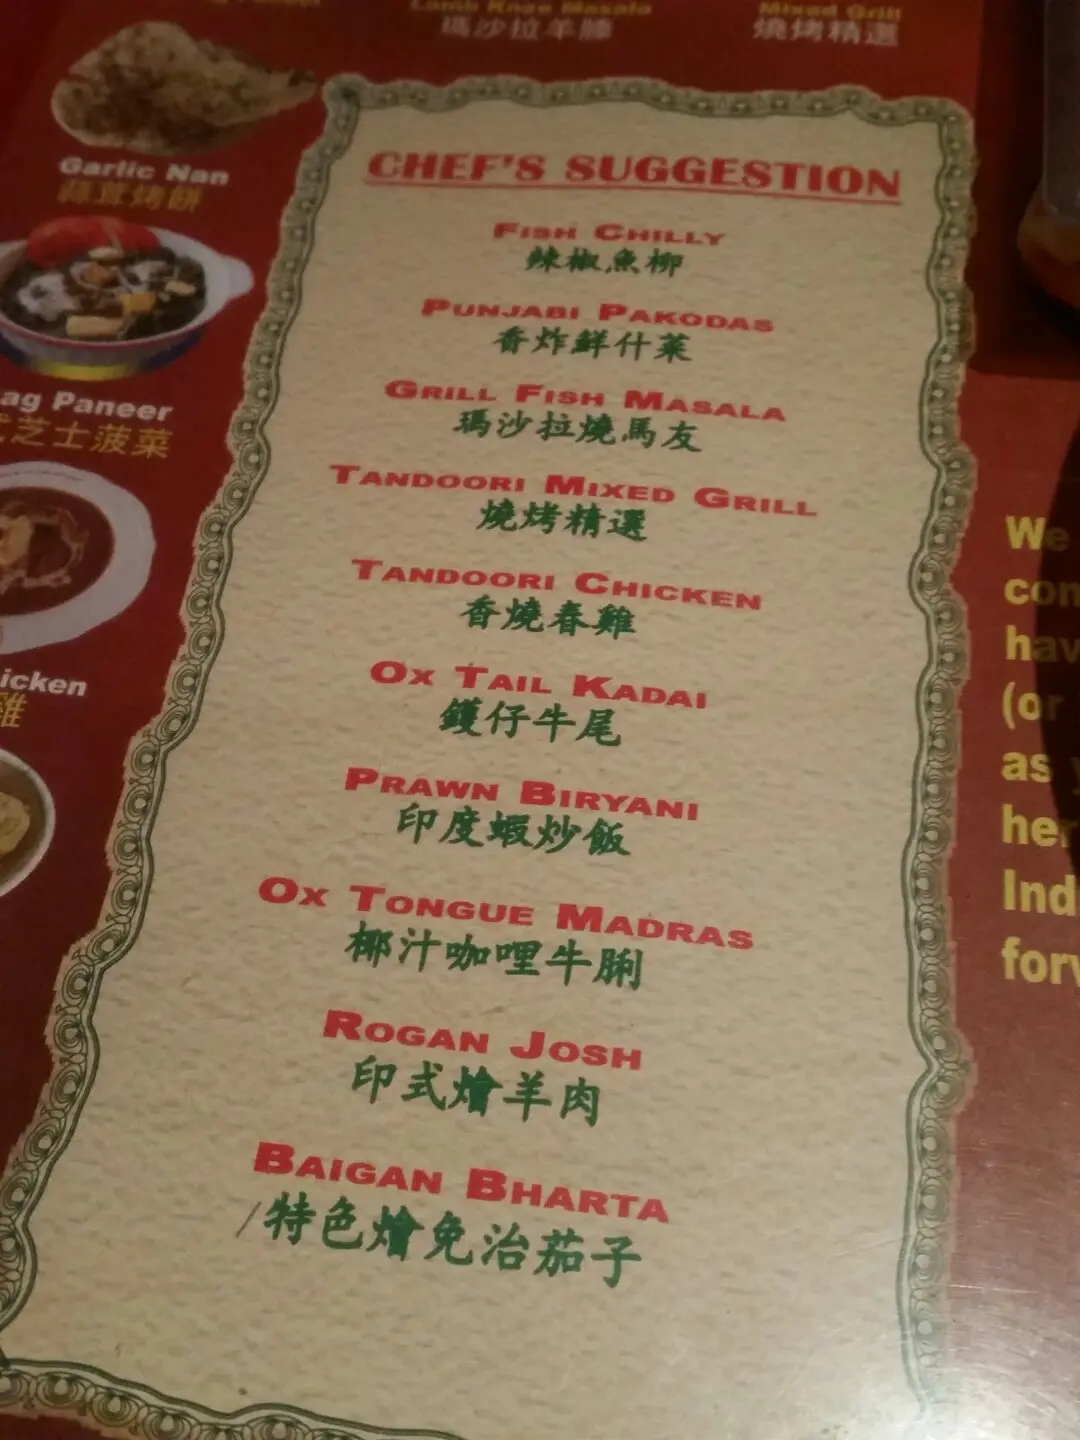 Lamb Knee Masala
瑪沙拉羊膝
Mixed Grill
燒烤精選
Garlic Nan
蒜茸烤餅
ag Paneer
式芝士菠菜
icken
雞
CHEF'S SUGGESTION
FISH CHILLY
辣椒魚柳
PUNJABI PAKODAS
香炸鮮什菜
GRILL FISH MASALA
瑪沙拉燒馬友
TANDOORI MIXED GRILL
燒烤精選
TANDOORI CHICKEN
香燒春雞
OX TAIL KADAI
鑊仔牛尾
PRAWN BIRYANI
印度蝦炒飯
OX TONGUE MADRAS
椰汁咖哩牛脷
ROGAN JOSH
印式燴羊肉
BAIGAN BHARTA
/特色燴免治茄子
We
con
hav
(or
as y
her
Ind
forw